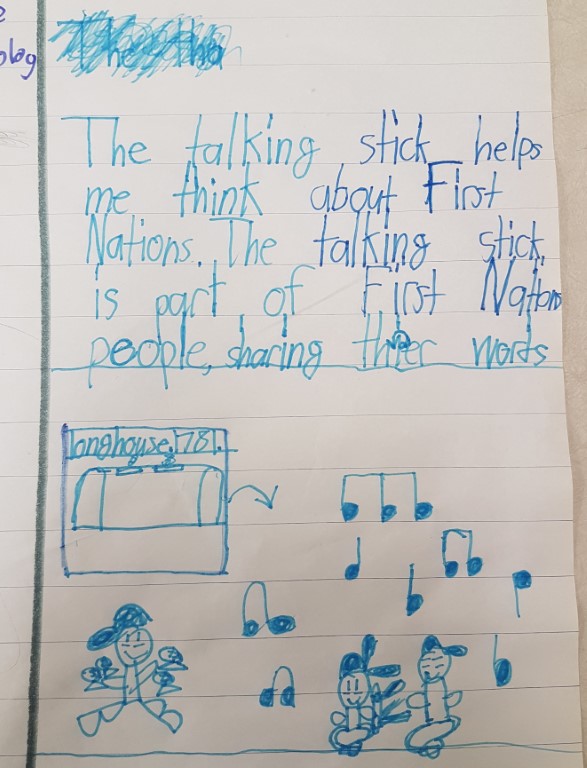 The talking stick helps
me think about First
Nations. The talking stick
is part of First Nations
people, sharing thier words
longhouse. 1781.